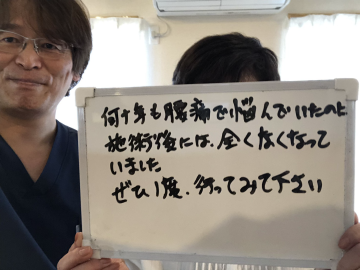 何十年も腰痛で悩んでいたのに
施術後には、全くなくなって
いました
ぜひ1度、行ってみて下さい